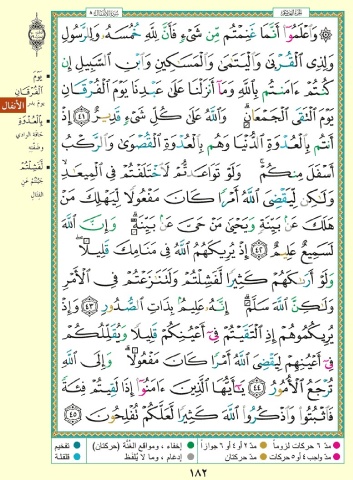 الجزء العاشر
سورة الأنفال ٨
۞ وَٱعْلَمُوٓا۟ أَنَّمَا غَنِمْتُم مِّن شَىْءٍ فَأَنَّ لِلَّهِ خُمُسَهُۥ وَلِلرَّسُولِ
وَلِذِى ٱلْقُرْبَىٰ وَٱلْيَتَـٰمَىٰ وَٱلْمَسَـٰكِينِ وَٱبْنِ ٱلسَّبِيلِ إِن
كُنتُمْ ءَامَنتُم بِٱللَّهِ وَمَآ أَنزَلْنَا عَلَىٰ عَبْدِنَا يَوْمَ ٱلْفُرْقَانِ
يَوْمَ ٱلْتَقَى ٱلْجَمْعَانِ ۗ وَٱللَّهُ عَلَىٰ كُلِّ شَىْءٍ قَدِيرٌ ٤١ إِذْ
أَنتُم بِٱلْعُدْوَةِ ٱلدُّنْيَا وَهُم بِٱلْعُدْوَةِ ٱلْقُصْوَىٰ وَٱلرَّكْبُ
أَسْفَلَ مِنكُمْ ۚ وَلَوْ تَوَاعَدتُّمْ لَٱخْتَلَفْتُمْ فِى ٱلْمِيعَـٰدِ ۙ
وَلَـٰكِن لِّيَقْضِىَ ٱللَّهُ أَمْرًا كَانَ مَفْعُولًا لِّيَهْلِكَ مَنْ
هَلَكَ عَنۢ بَيِّنَةٍ وَيَحْيَىٰ مَنْ حَىَّ عَنۢ بَيِّنَةٍ ۗ وَإِنَّ ٱللَّهَ
لَسَمِيعٌ عَلِيمٌ ٤٢ إِذْ يُرِيكَهُمُ ٱللَّهُ فِى مَنَامِكَ قَلِيلًا ۖ
وَلَوْ أَرَىٰكَهُمْ كَثِيرًا لَّفَشِلْتُمْ وَلَتَنَـٰزَعْتُمْ فِى ٱلْأَمْرِ
وَلَـٰكِنَّ ٱللَّهَ سَلَّمَ ۗ إِنَّهُۥ عَلِيمٌۢ بِذَاتِ ٱلصُّدُورِ ٤٣ وَإِذْ
يُرِيكُمُوهُمْ إِذِ ٱلْتَقَيْتُمْ فِىٓ أَعْيُنِكُمْ قَلِيلًا وَيُقَلِّلُكُمْ
فِىٓ أَعْيُنِهِمْ لِيَقْضِىَ ٱللَّهُ أَمْرًا كَانَ مَفْعُولًا ۗ وَإِلَى ٱللَّهِ
تُرْجَعُ ٱلْأُمُورُ ٤٤ يَـٰٓأَيُّهَا ٱلَّذِينَ ءَامَنُوٓا۟ إِذَا لَقِيتُمْ فِئَةً
فَٱثْبُتُوا۟ وَٱذْكُرُوا۟ ٱللَّهَ كَثِيرًا لَّعَلَّكُمْ تُفْلِحُونَ ٤٥
يَوْمَ
الْفُرْقَانِ
يوم بدر
الأنفال
بِالْعُدْوَةِ
حافة الوادي
وضفّته
لَفَشِلْتُمْ
جبنتم عن
القتال
مدّ ٦ حركات لزوماً
مدّ ٢ أو ٤ أو ٦ جوازاً
إخفاء، ومواقع الغُنَّة (حركتان)
تفخيم
مدّ واجب ٤ أو ٥ حركات
مدّ حركتان
إدغام، وما لا يُلفظ
قلقلة
١٨٢